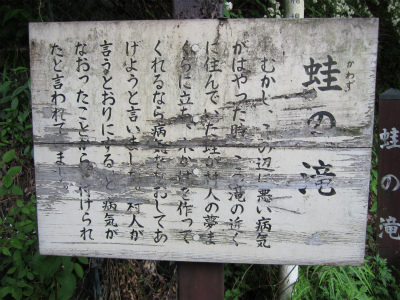 かわず
蛙の滝
むかし、この辺に悪い病気
がはやった時、この滝の近く
に住んでいた蛙が村人の夢ま
くらに立ち、水かけを作って
くれるなら病気をなおしてあ
げようと言いました。村人が
言うとおりにすると病気が
なおったことから名付けられ
たと言われています
蛙の滝